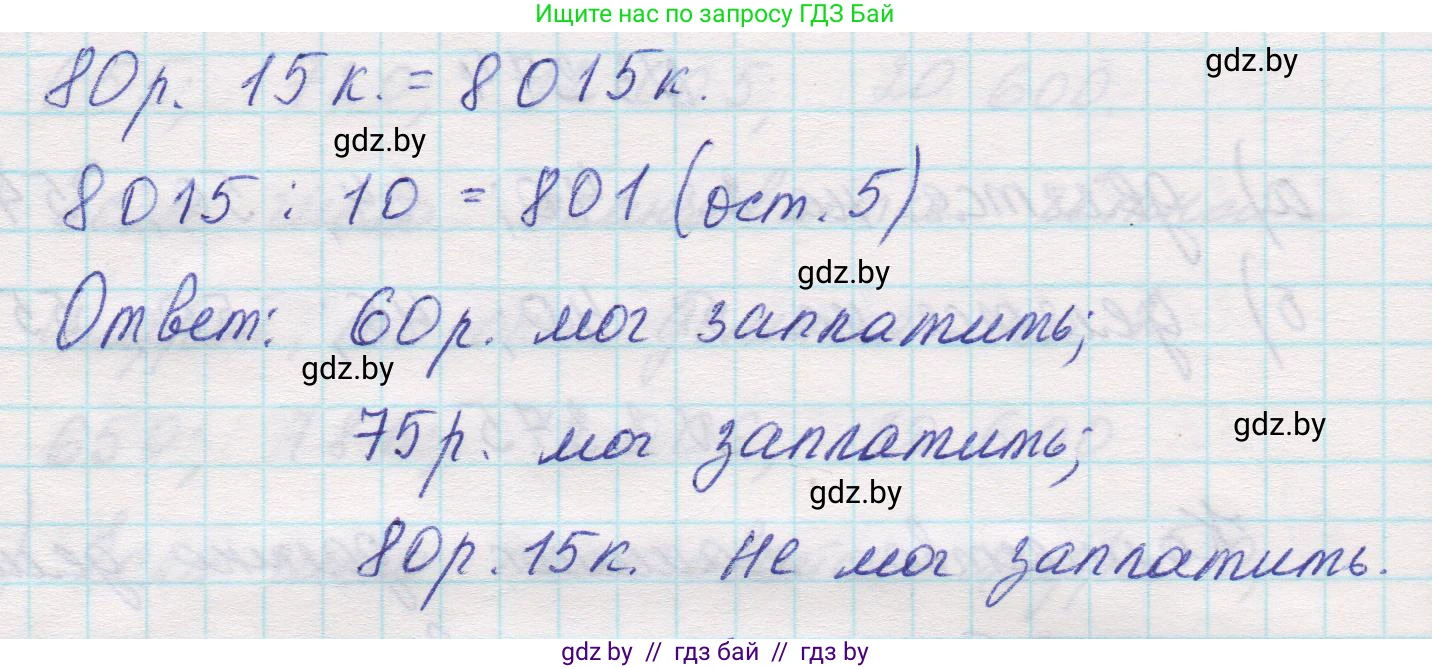 Ищите нас по запросу ГДЗ Бай
80р. 15к. = 8015к.
gdz.by
gdz.by
8015 : 10 = 801 (ост. 5)
gdz.by
Ответ: 60р. мог заплатить;
gdz.by
75р. мог заплатить;
gdz.by
gdz.by
80р. 15к. не мог заплатить.
gdz.by // гдз бай // гдз by